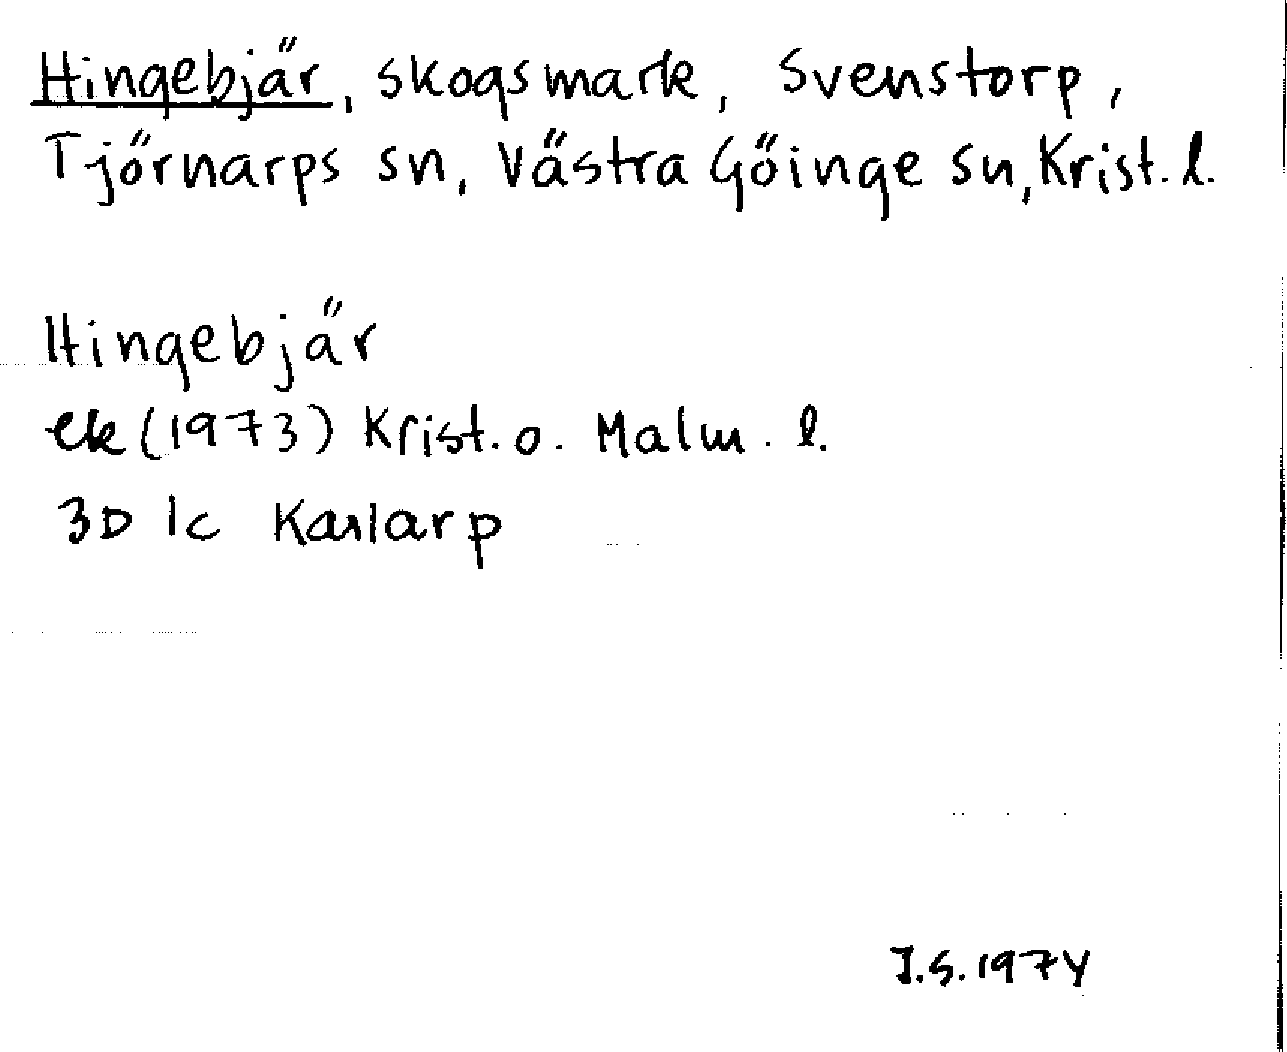 Hingebjär, skogsmark, Svenstorp,
Tjörnarps sn, Västra Göinge sn, Krist. l.
Hingebjär
ek (1973) Krist. o. Malm. l.
3D 1c Karlarp
I.S. 1974